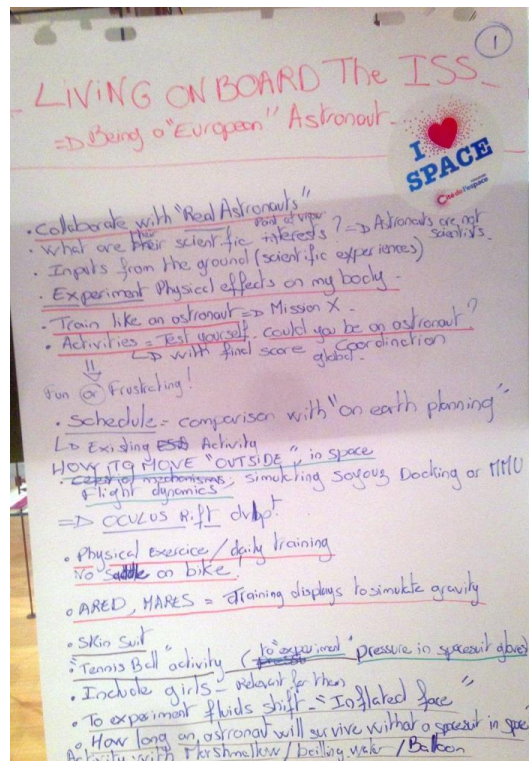 1
LIVING ON BOARD The ISS
=> Being a "European" Astronaut
I ♥
SPACE
Cité de l'espace
• Collaborate with "Real Astronauts"
Point of view
• What are their scientific interests? => Astronauts are not
scientists.
• Inputs from the ground (scientific experiences)
• Experiment Physical effects on my body.
• Train like an astronaut => Mission X.
• Activities = Test yourself. Could you be an astronaut?
↳ with final score Coordination
global.
Fun or Frustrating!
• Schedule = comparison with "on earth planning"
↳ Existing ESA Activity
HOW TO MOVE "OUTSIDE" in space
• Celestial mechanisms, simulating Soyouz Docking or MMU
Flight dynamics
=> OCULUS Rift dvlpt
• Physical Exercice / daily training
No Saddle on bike.
• ARED, MARES = Training displays to simulate gravity
• Skin Suit
"Tennis Ball" activity (to "experiment" pressure in spacesuit gloves
• Include girls - Relevant for them
• To experiment fluids shift - "Inflated face"
• How long an astronaut will survive without a spacesuit in space
Activity with Marshmellow / boiling water / Balloon